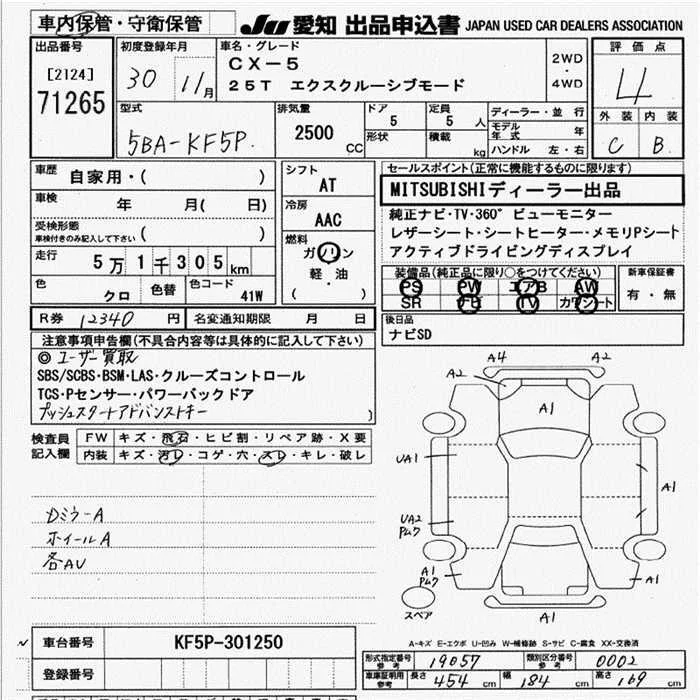 車内保管・守衛保管
JU 愛知 出品申込書 JAPAN USED CAR DEALERS ASSOCIATION
出品番号
[2124]
71265
初度登録年月
30 11月
車名・グレード
CX-5
25T エクスクルーシブモード
2WD
・
4WD
評価点
4
外装 内装
C B
型式
5BA-KF5P
排気量
2500 CC
ドア
5
定員
5 人
形状
積載
kg
ディーラー・並行
モデル年式 年
ハンドル 左・右
車歴
自家用・( )
車検
年 月( 日)
受検形態
車検付きのみ記入して下さい
( )
走行
5万1千305km
色
クロ
色替
色コード
41W
シフト
AT
冷房
AAC
燃料
ガソリン
軽・油
( )
セールスポイント(正常に機能するものに限ります)
MITSUBISHIディーラー出品
純正ナビ・TV・360°ビューモニター
レザーシート・シートヒーター・メモリPシート
アクティブドライビングディスプレイ
装備品(純正品に限り○をつけてください)
PS PW エアB AW
SR ナビ TV カワシート
新車保証書
有・無
後日品
ナビSD
R券 12340 円
名変通知期限 月 日
注意事項申告欄(不具合内容等は具体的に記入して下さい)
◎ユーザー買取
SBS/SCBS・BSM・LAS・クルーズコントロール
TCS・Pセンサー・パワーバックドア
プッシュスタートアドバンストキー
検査員
記入欄
FW キズ・飛石・ヒビ割・リペア跡・X要
内装 キズ・汚レ・コゲ・穴・スレ・キレ・破レ
Dミラ-A
ホイールA
各AU
A4 A2
A2
A1
UA1
A1
UA2
Pムケ
A1
Pムケ
A1
スペア
A1
A-キズ E-エクボ U-凹み W-補修跡 S-サビ C-腐食 XX-交換済
車台番号
KF5P-301250
登録番号
形式指定番号
参考
19057
類別区分番号
参考
0002
車庫証明用
参考
長さ 454 cm
幅 184 cm
高さ 169 cm